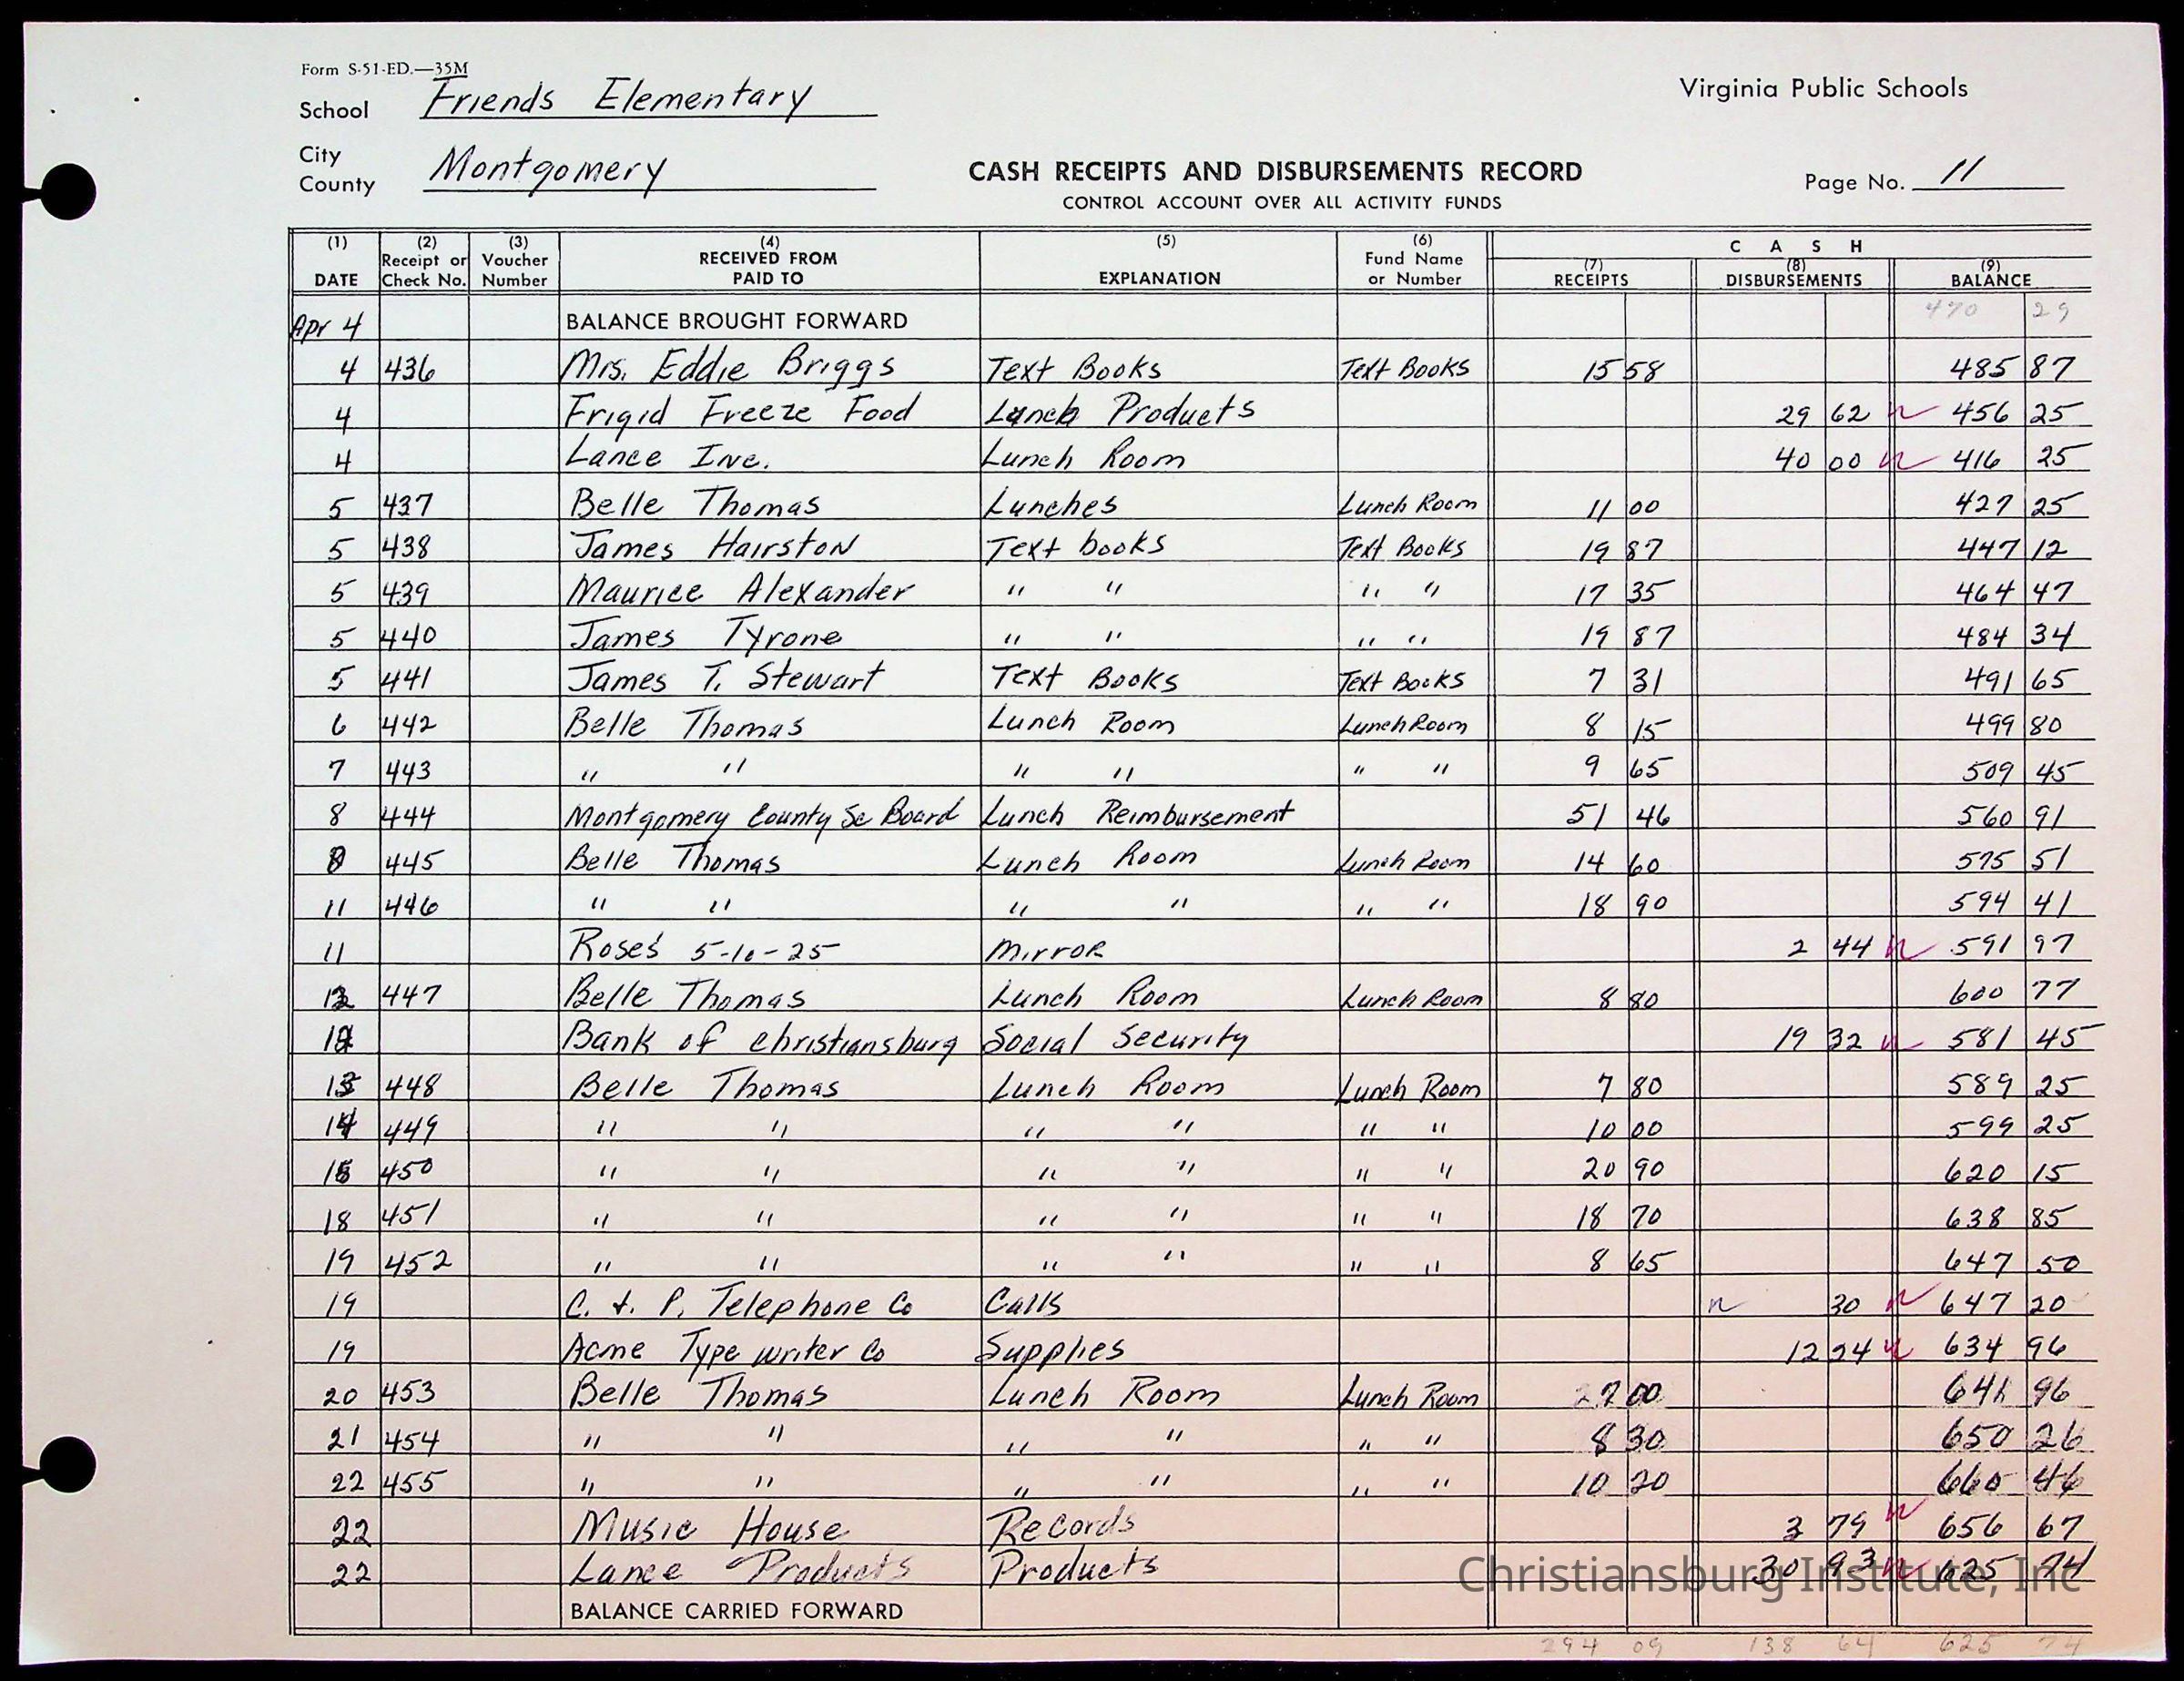 Form S-51-ED.—35M
School Friends Elementary
Virginia Public Schools
City
County Montgomery
CASH RECEIPTS AND DISBURSEMENTS RECORD
CONTROL ACCOUNT OVER ALL ACTIVITY FUNDS
Page No. 11
(1) DATE (2) Receipt or Check No. (3) Voucher Number (4) RECEIVED FROM PAID TO (5) EXPLANATION (6) Fund Name or Number CASH (7) RECEIPTS (8) DISBURSEMENTS (9) BALANCE
Apr 4 BALANCE BROUGHT FORWARD 470 29
4 436 Mrs. Eddie Briggs Text Books Text Books 15 58 485 87
4 Frigid Freeze Food Lunch Products 29 62 456 25
4 Lance Inc. Lunch Room 40 00 416 25
5 437 Belle Thomas Lunches Lunch Room 11 00 427 25
5 438 James Hairston Text books Text Books 19 87 447 12
5 439 Maurice Alexander " " " " 17 35 464 47
5 440 James Tyrone " " " " 19 87 484 34
5 441 James T. Stewart Text Books Text Books 7 31 491 65
6 442 Belle Thomas Lunch Room Lunch Room 8 15 499 80
7 443 " " " " " " 9 65 509 45
8 444 Montgomery County Sc Board Lunch Reimbursement 51 46 560 91
8 445 Belle Thomas Lunch Room Lunch Room 14 60 575 51
11 446 " " " " " " 18 90 594 41
11 Roses 5-10-25 Mirror 2 44 591 97
12 447 Belle Thomas Lunch Room Lunch Room 8 80 600 77
12 Bank of Christiansburg Social Security 19 32 581 45
13 448 Belle Thomas Lunch Room Lunch Room 7 80 589 25
14 449 " " " " " " 10 00 599 25
15 450 " " " " " " 20 90 620 15
18 451 " " " " " " 18 70 638 85
19 452 " " " " " " 8 65 647 50
19 C. & P. Telephone Co Calls 30 647 20
19 Acme Type writer Co Supplies 12 24 634 96
20 453 Belle Thomas Lunch Room Lunch Room 7 00 641 96
21 454 " " " " " " 8 30 650 26
22 455 " " " " " " 10 20 660 46
22 Music House Records 3 79 656 67
22 Lance Products Products 30 93 625 74
Christiansburg Institute, Inc
BALANCE CARRIED FORWARD
294 09 138 64 625 74